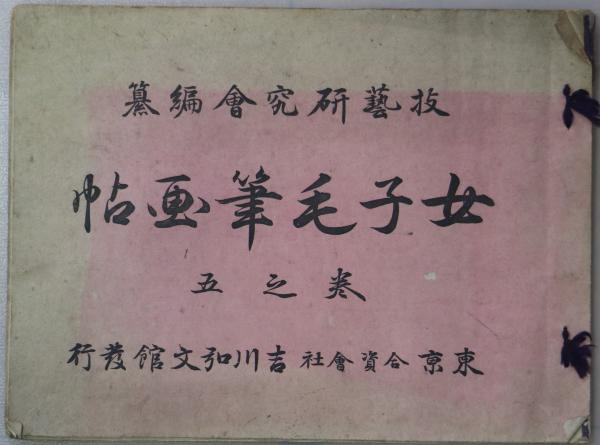 技藝研究會編纂
女子毛筆画帖
巻之五
東京合資會社吉川弘文館發行